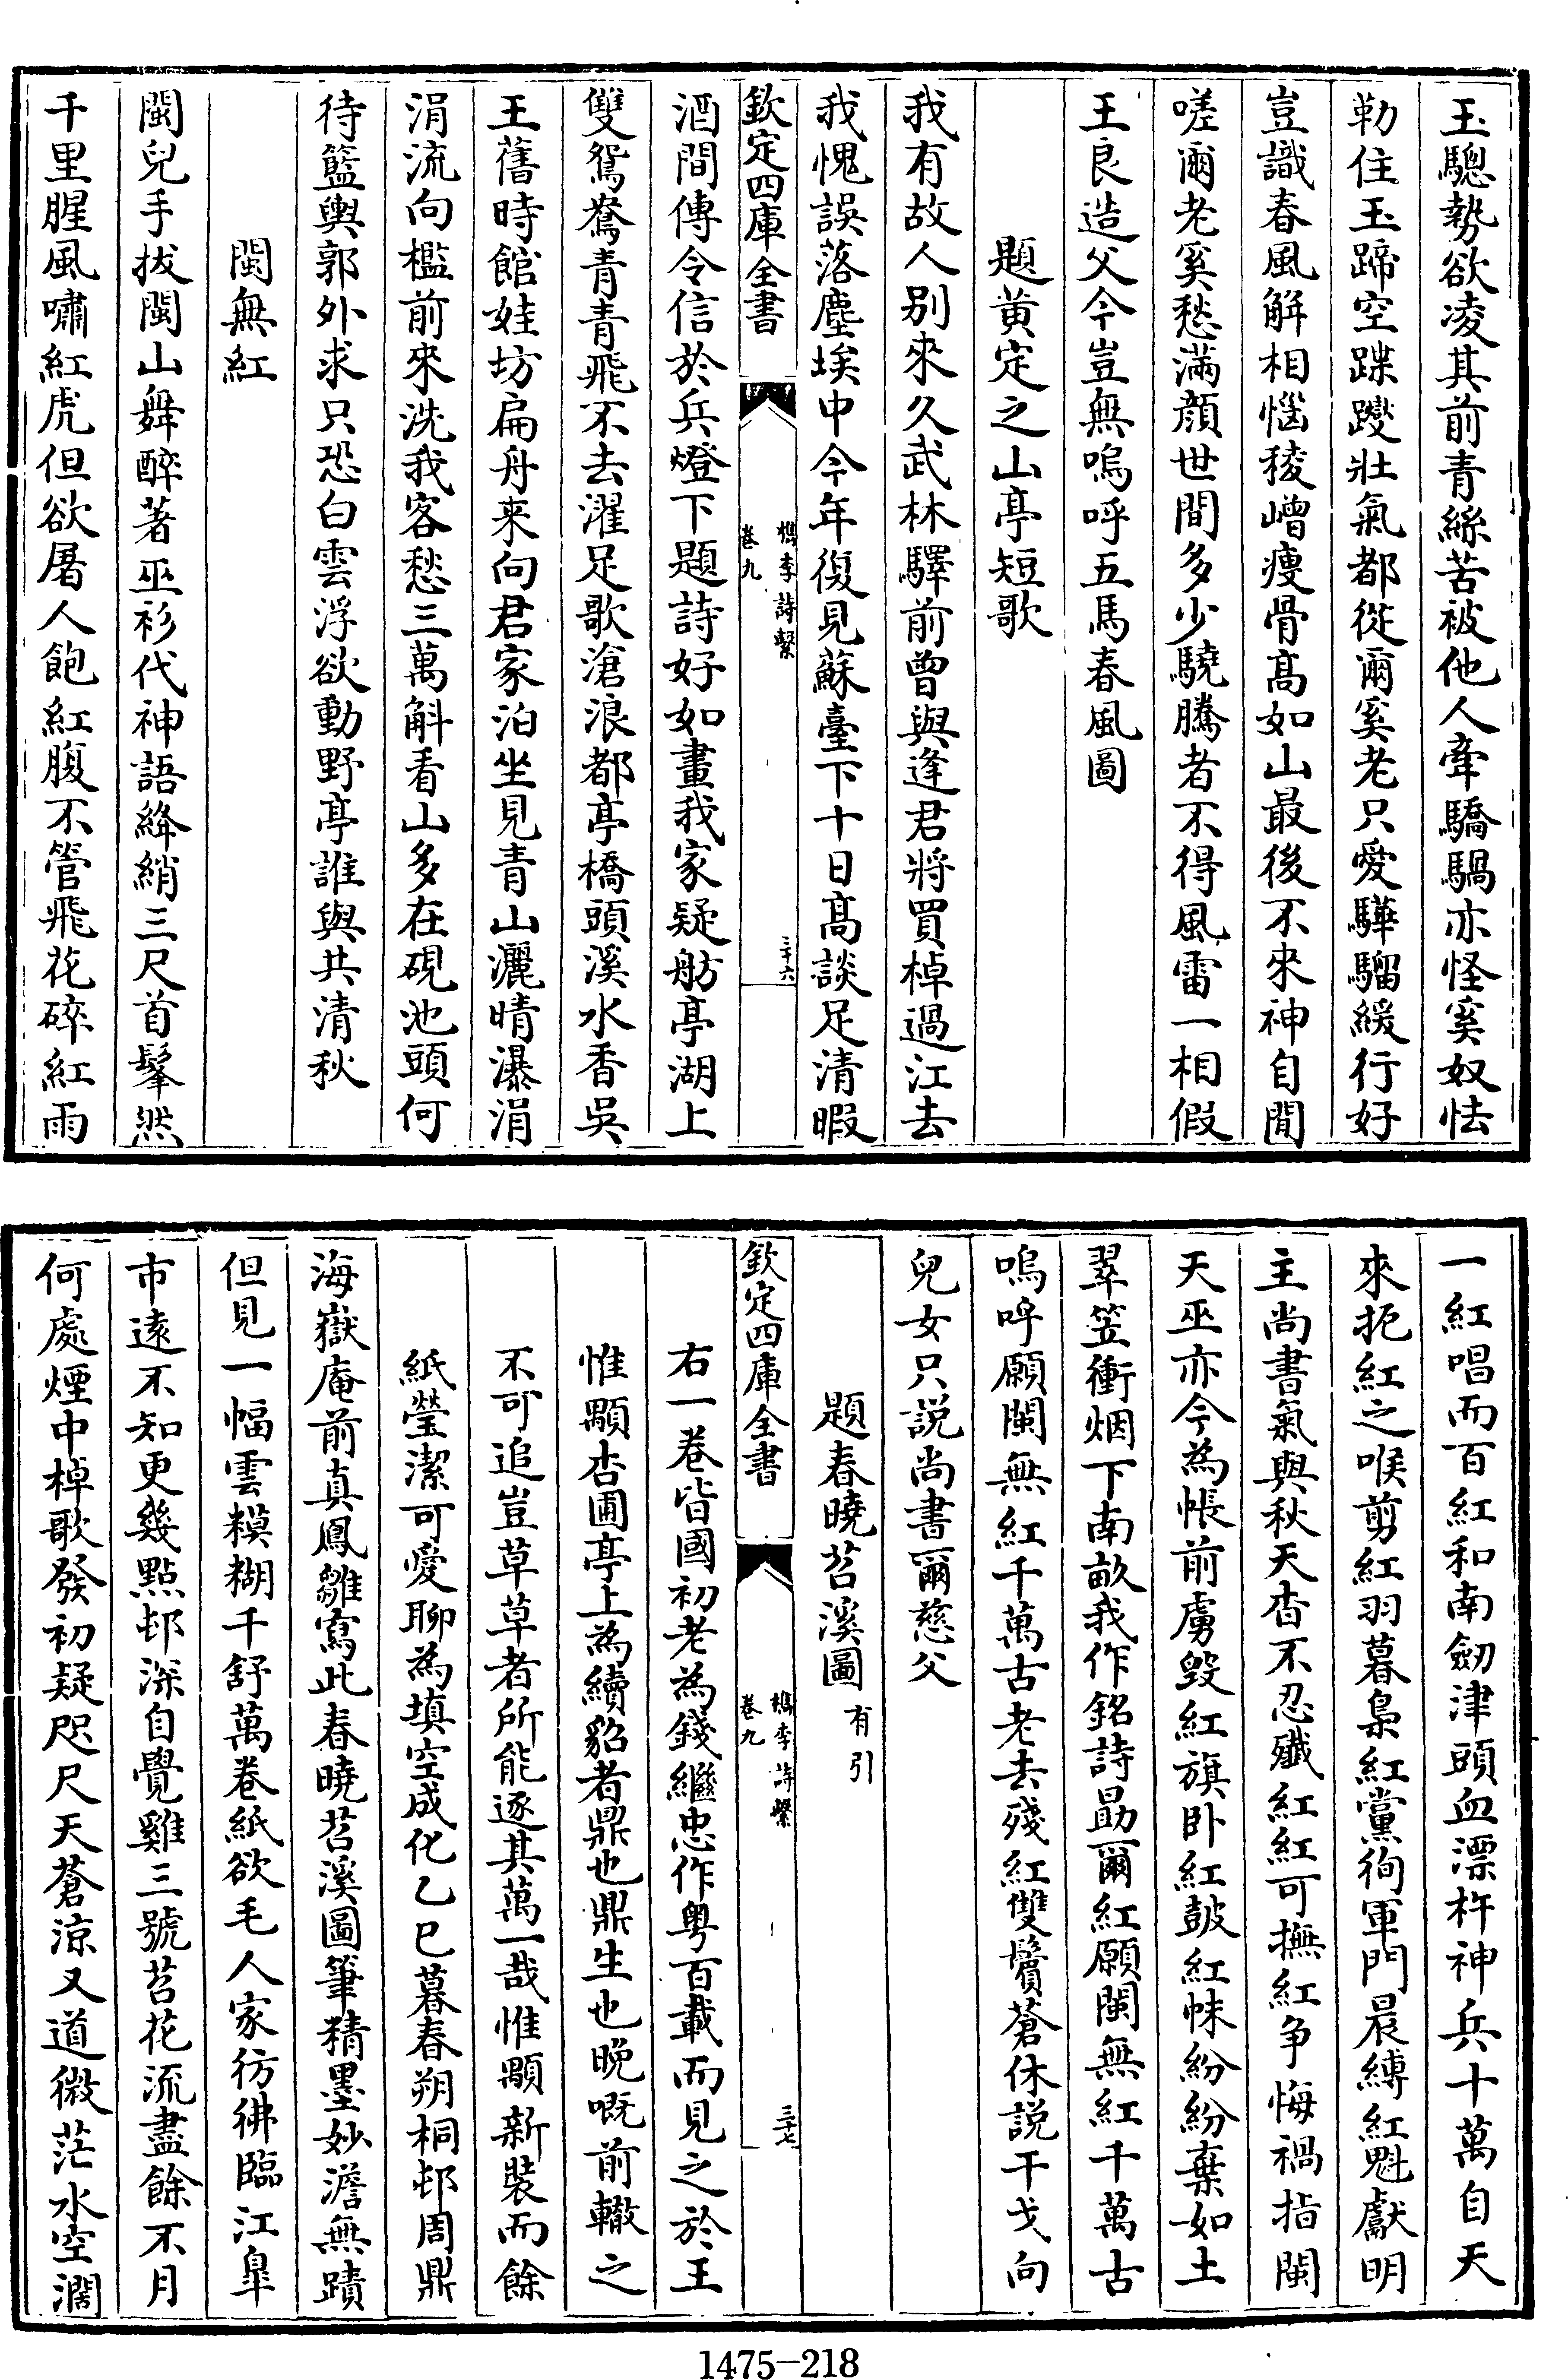 玉驄勢欲凌其前青絲苦被他人牽驕騧亦怪奚奴怯
勒住玉蹄空蹀躞壯氣都從爾奚老只愛驊騮緩行好
豈識春風解相惱稜嶒瘦骨髙如山最後不來神自閒
嗟爾老奚愁滿顔世間多少驍騰者不得風雷一相假
王良造父今豈無嗚呼五馬春風圖
題黄定之山亭短歌
我有故人别來久武林驛前曽與逢君將買棹過江去
我愧誤落塵埃中今年復見蘇臺下十日髙談足清暇
欽定四庫全書
檇李詩繫
卷九
三十六
酒間傳令信於兵燈下題詩好如畫我家疑舫亭湖上
雙鴛鴦青青飛不去濯足歌滄浪都亭橋頭溪水香吳
王舊時館娃坊扁舟来向君家泊坐見青山灑晴瀑涓
涓流向檻前來洗我客愁三萬斛看山多在硯池頭何
待籃輿郭外求只恐白雲浮欲動野亭誰與共清秋
閩無紅
閩兒手拔閩山舞醉著巫衫代神語絳綃三尺首髼然
千里腥風嘯紅虎但欲屠人飽紅腹不管飛花碎紅雨
一紅唱而百紅和南劒津頭血漂杵神兵十萬自天
來扼紅之喉剪紅羽暮梟紅黨徇軍門晨縛紅魁獻明
主尚書氣與秋天杳不忍殱紅紅可撫紅争悔禍指閩
天巫亦今為帳前虜毁紅旗卧紅鼓紅帓紛紛棄如土
翠笠衝烟下南畝我作銘詩勗爾紅願閩無紅千萬古
嗚呼願閩無紅千萬古老去殘紅雙鬢蒼休説干戈向
兒女只説尚書爾慈父
題春曉苕溪圖有引
欽定四庫全書
檇李詩繫
卷九
三十七
右一巻皆國初老為錢繼忠作粤百載而見之於王
惟顒杏圃亭上為續貂者鼎也鼎生也晩嘅前轍之
不可追豈草草者所能逐其萬一哉惟顒新裝而餘
紙瑩潔可愛聊為填空成化乙巳暮春朔桐邨周鼎
海嶽庵前真鳳雛寫此春曉苕溪圖筆精墨妙澹無蹟
但見一幅雲糢糊千舒萬巻紙欲毛人家彷彿臨江臯
市逺不知更幾㸃邨深自覺雞三號苕花流盡餘不月
何處煙中棹歌發初疑咫尺天蒼涼又道微茫水空濶
1475—218